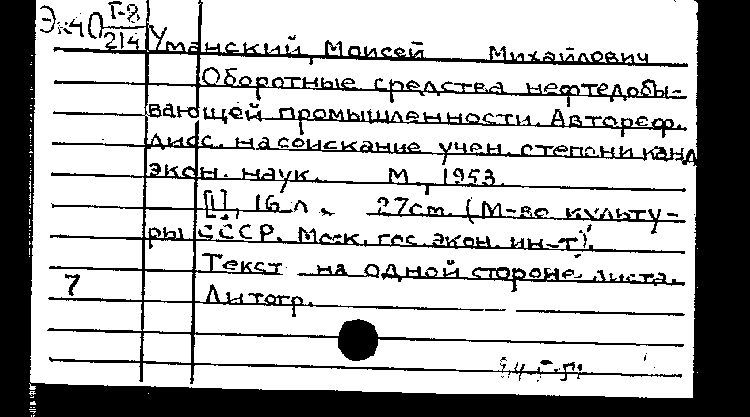 Эк40 Г-8
214
Уманский, Моисей Михайлович
Оборотные средства нефтедобы-
вающей промышленности. Автореф.
дисс. на соискание учен. степени канд
экон. наук. М., 1953.
[1], 16 л. 27см. (М-во культу-
ры СССР. Моск. гос. экон. ин-т).
Текст на одной стороне листа.
7 Литогр.